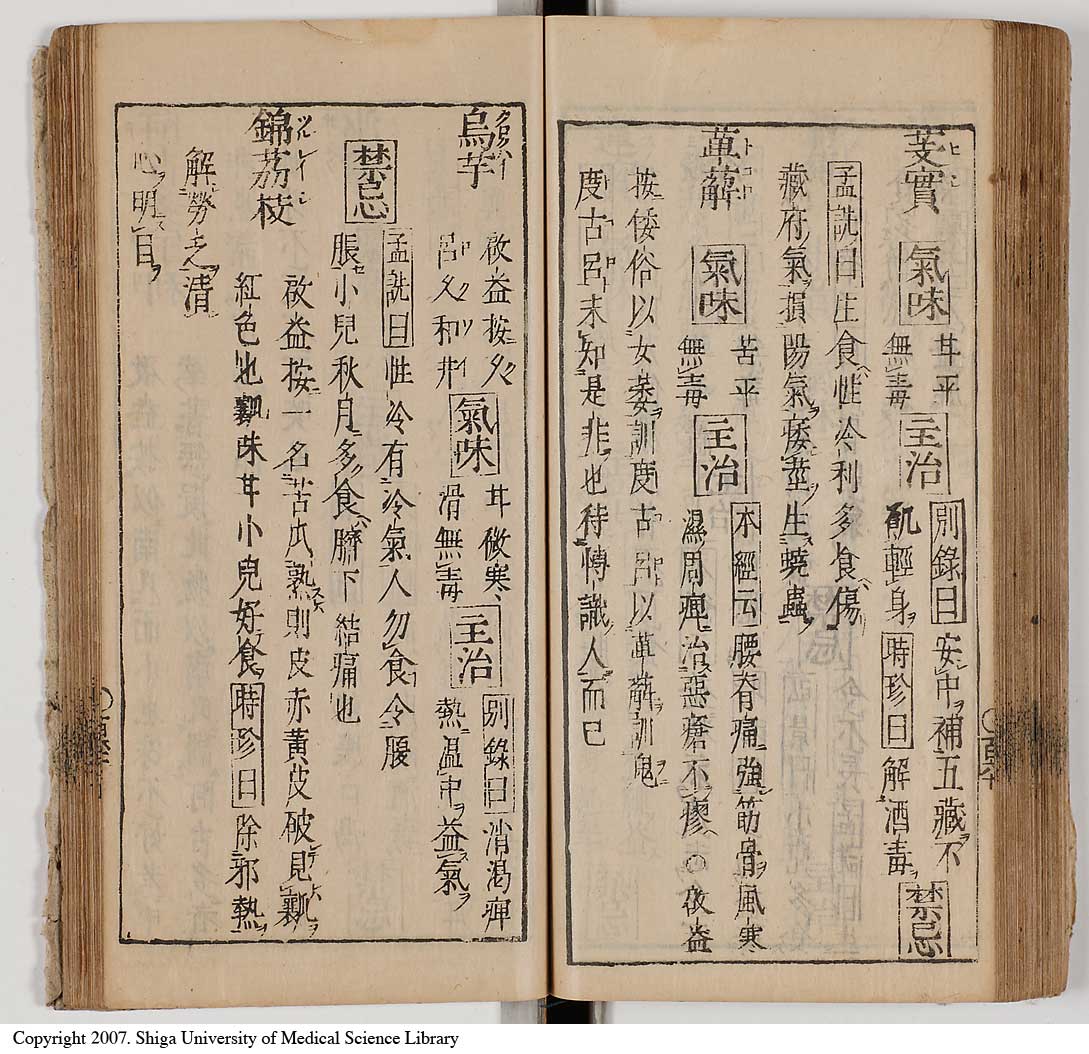 芰實 ヒシ 氣味 甘平無毒 主治 別錄曰安中補五藏不
飢輕身 時珍曰解酒毒 禁忌
孟詵曰生食性冷利多食傷
藏府氣損陽氣痿莖生蟯蟲
萆薢 トコロ 氣味 苦平無毒 主治 本經云腰脊痛強筋骨風寒
濕周痺治惡瘡不瘳○啟益
按倭俗以女萎訓度古呂以萆薢訓鬼
度古呂未知是非也待博識人而已
烏芋 クログワイ 啟益按久
呂久和井 氣味 甘微寒滑無毒 主治 別錄曰消渴痺
熱溫中益氣
禁忌 孟詵曰性冷有冷氣人勿食令腹
脹小兒秋月多食臍下結痛也
錦荔枝 ツルレイシ 啟益按一名苦瓜熟則皮赤黃皮破見瓤
紅色也瓤味甘小兒好食 時珍曰除邪熱
解勞乏清
心明目